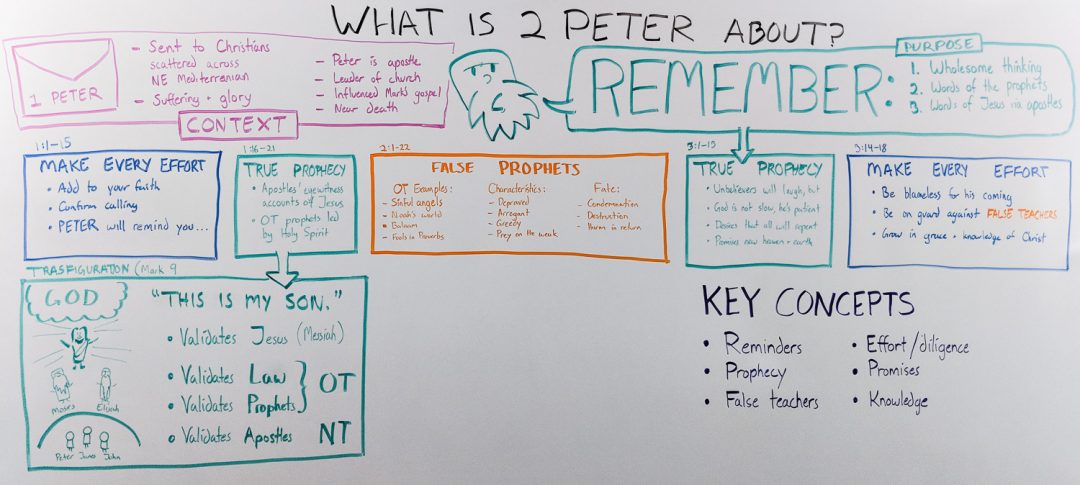 WHAT IS 2 PETER ABOUT?
1 PETER
- Sent to Christians
scattered across
NE Mediterrenian
- Suffering + glory
- Peter is apostle
- Leader of church
- Influenced Mark's gospel
- Near death
CONTEXT
REMEMBER:
PURPOSE
1. Wholesome thinking
2. Words of the prophets
3. Words of Jesus via apostles
1:1-15
MAKE EVERY EFFORT
• Add to your faith
• Confirm calling
• PETER will remind you...
1:16-21
TRUE PROPHECY
• Apostles' eyewitness
accounts of Jesus
• OT prophets led
by Holy Spirit
2:1-22
FALSE PROPHETS
OT Examples:
- Sinful angels
- Noah's world
- Balaam
- Fools in Proverbs
Characteristics:
- Depraved
- Arrogant
- Greedy
- Prey on the weak
Fate:
- Condemnation
- Destruction
- Harm in return
3:1-13
TRUE PROPHECY
• Unbelievers will laugh, but
• God is not slow, he's patient
• Desires that all will repent
• Promises new heaven + earth
3:14-18
MAKE EVERY EFFORT
• Be blameless for his coming
• Be on guard against FALSE TEACHERS
• Grow in grace + knowledge of Christ
TRASFIGURATION (Mark 9
GOD
Moses
Elijah
Peter James John
"THIS IS MY SON."
• Validates Jesus (Messiah)
• Validates Law
• Validates Prophets
OT
• Validates Apostles NT
KEY CONCEPTS
• Reminders
• Prophecy
• False teachers
• Effort/diligence
• Promises
• Knowledge